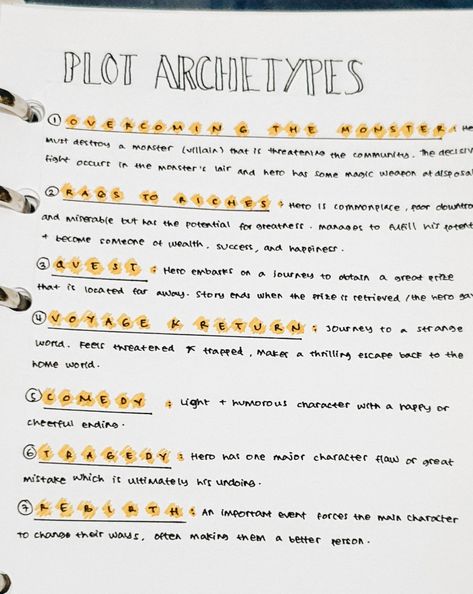 PLOT ARCHETYPES
① OVERCOMING THE MONSTER: He
must destroy a monster (villain) that is threatening the community. The decisiv
fight occurs in the monster's lair and hero has some magic weapon at disposal
② RAGS TO RICHES : Hero is commonplace, poor downtro
and miserable but has the potential for greatness. manages to fulfill his potent
+ become someone of wealth, success, and happiness.
③ QUEST : Hero embarks on a journey to obtain a great prize
that is located far away. Story ends when the prize is retrieved / the hero
④ VOYAGE & RETURN : Journey to a strange
world. Feels threatened & trapped, makes a thrilling escape back to the
home world.
⑤ COMEDY : Light + humorous character with a happy or
cheerful ending.
⑥ TRAGEDY : Hero has one major character flaw or great
mistake which is ultimately his undoing.
⑦ REBIRTH : An important event forces the main character
to change their ways, often making them a better person.